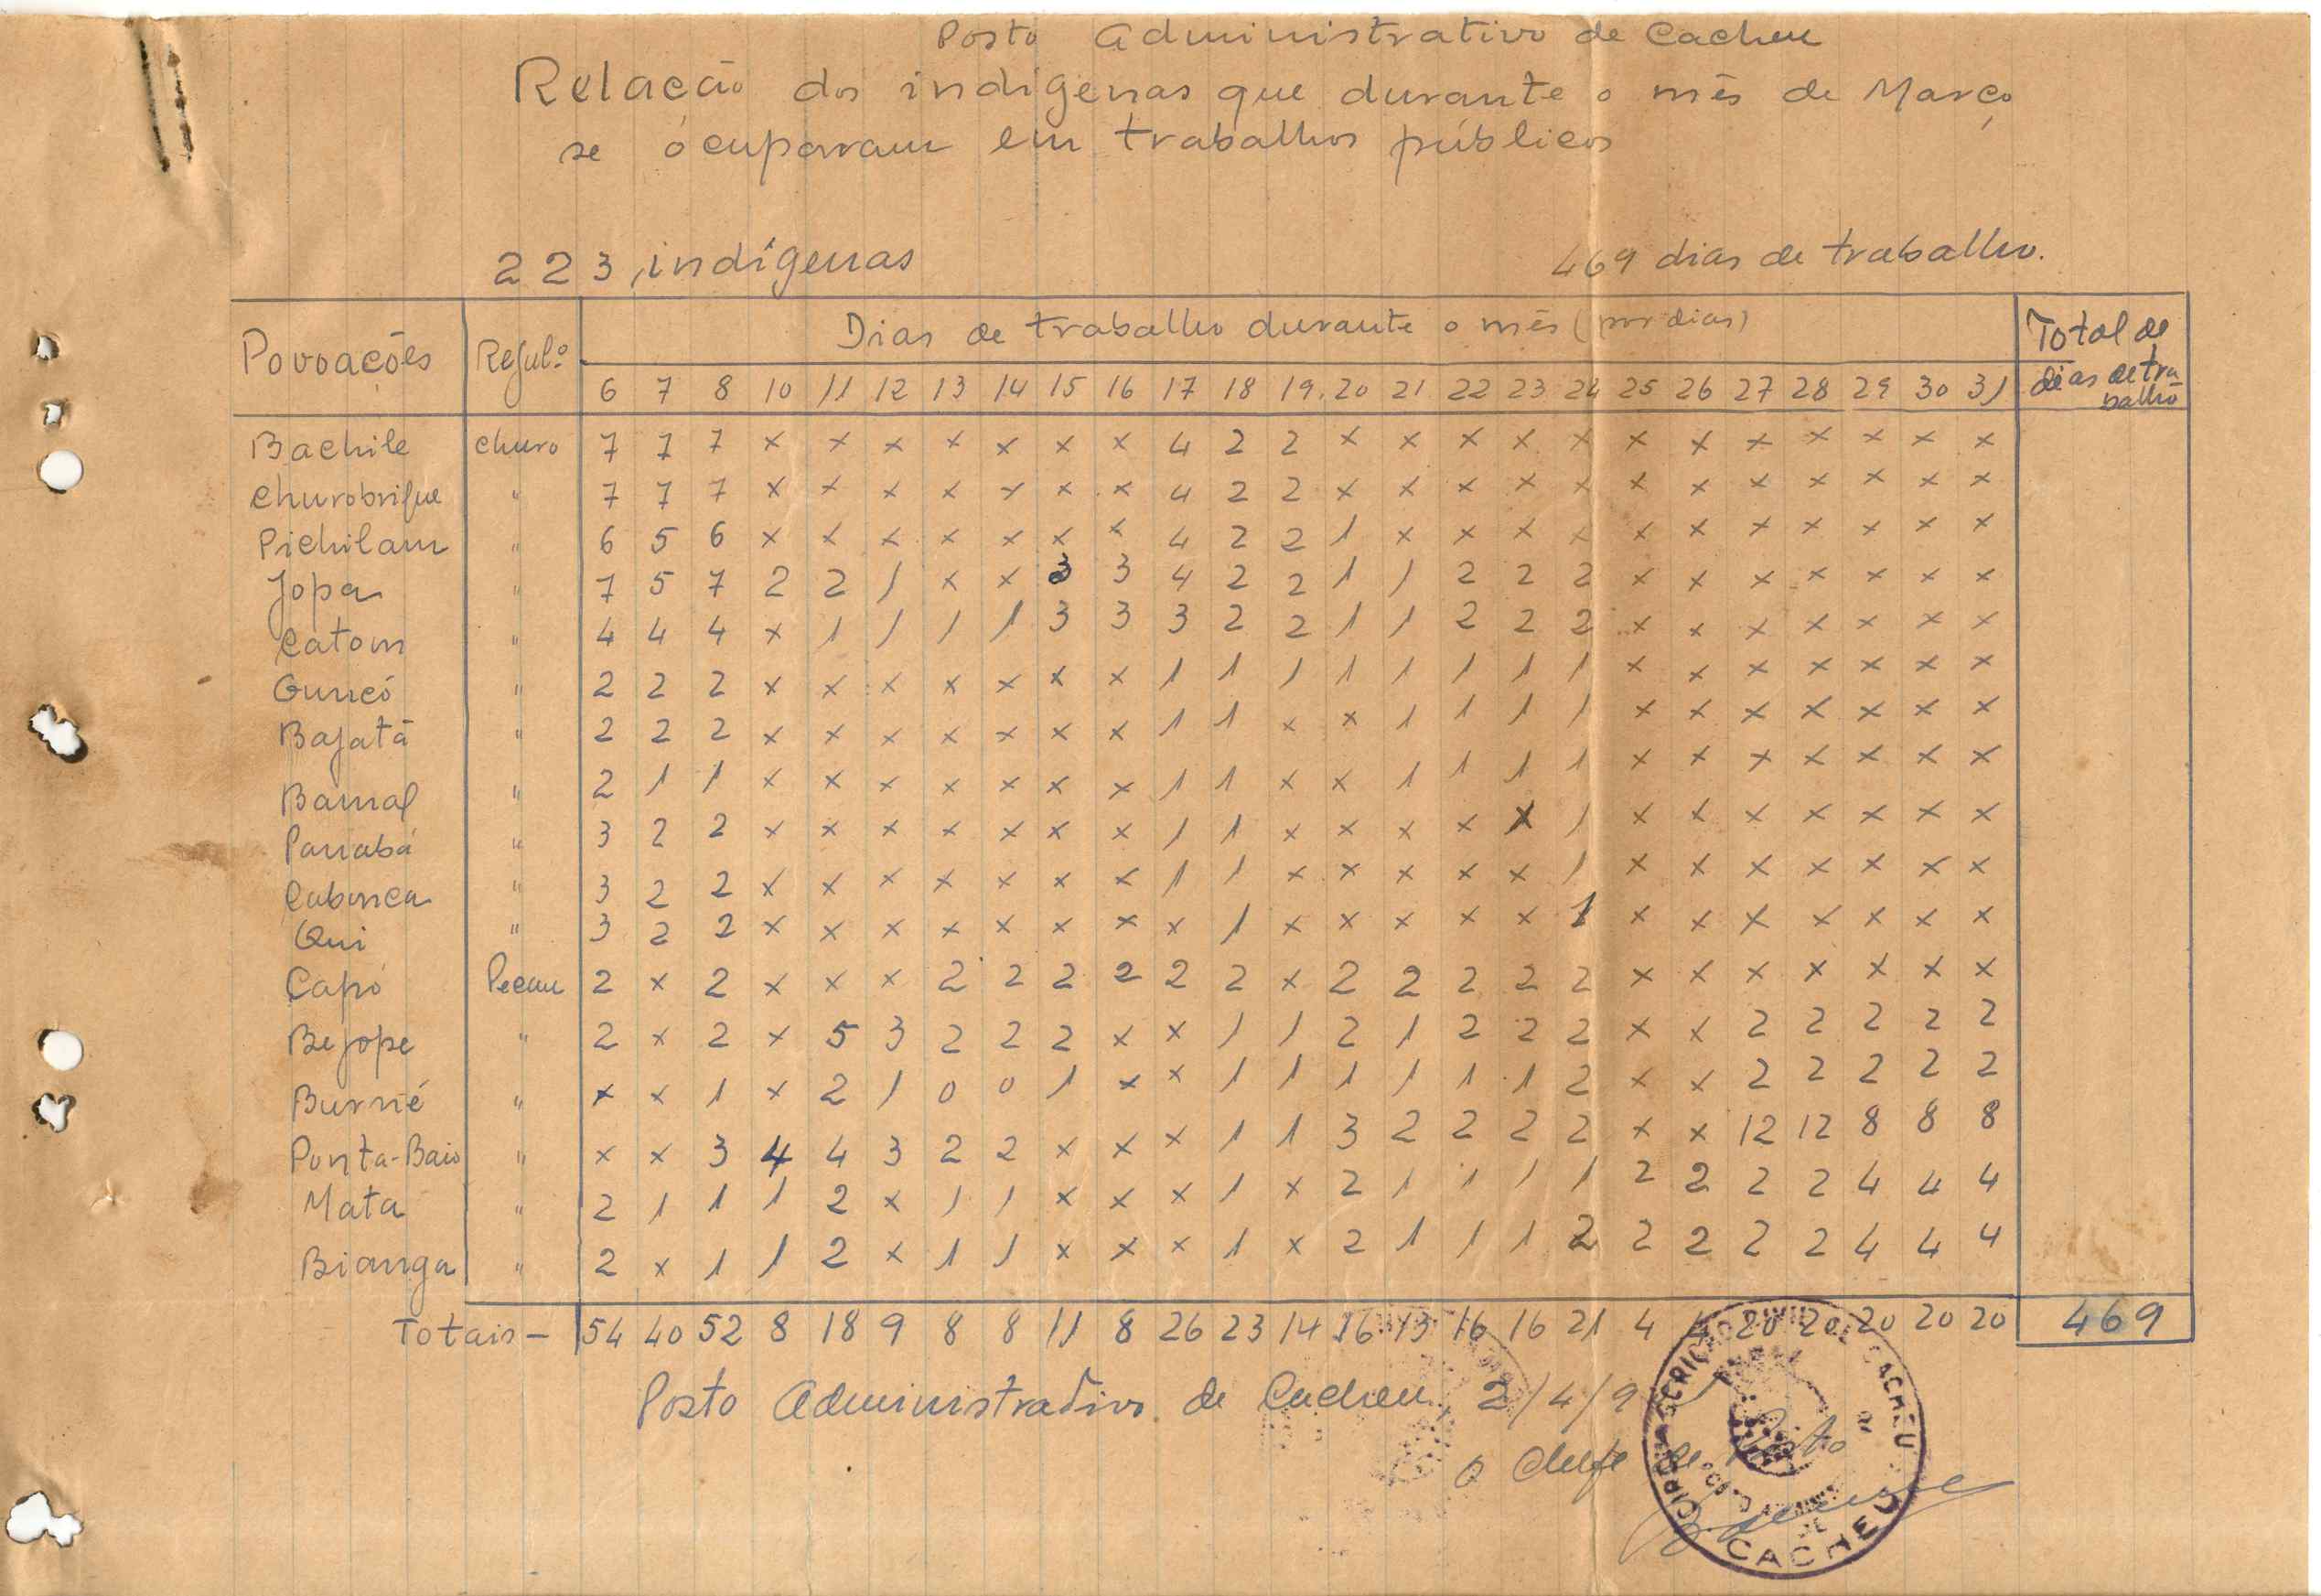 Posto Administrativo de Cacheu
Relacão dos indígenas que durante o mês de Março
se ócuparam em trabalhos públicos
223 indígenas 469 dias de trabalho.
Povoações Regul.º Dias de trabalho durante o mês (por dias) Total de dias de trabalho
6 7 8 10 11 12 13 14 15 16 17 18 19. 20 21 22 23 24 25 26 27 28 29 30 31
Bachile churo 7 7 7 x x x x x x x 4 2 2 x x x x x x x x x x x x
Churobrique " 7 7 7 x x x x x x x 4 2 2 x x x x x x x x x x x x
Pichilam " 6 5 6 x x x x x x x 4 2 2 1 x x x x x x x x x x x
Jopa " 7 5 7 2 2 1 x x 3 3 4 2 2 1 1 2 2 2 x x x x x x x
Catom " 4 4 4 x 1 1 1 1 3 3 3 2 2 1 1 2 2 2 x x x x x x x
Guncó " 2 2 2 x x x x x x x 1 1 1 1 1 1 1 1 x x x x x x x
Bajatã " 2 2 2 x x x x x x x 1 1 x x 1 1 1 1 x x x x x x x
Bamal " 2 1 1 x x x x x x x 1 1 x x 1 1 1 1 x x x x x x x
Panabá " 3 2 2 x x x x x x x 1 1 x x x x x 1 x x x x x x x
Cabonca " 3 2 2 x x x x x x x 1 1 x x x x x 1 x x x x x x x
Qui " 3 2 2 x x x x x x x x 1 x x x x x 1 x x x x x x x
Capó Pecau 2 x 2 x x x 2 2 2 2 2 2 x 2 2 2 2 2 x x x x x x x
Bejope " 2 x 2 x 5 3 2 2 2 x x 1 1 2 1 2 2 2 x x 2 2 2 2 2
Burné " x x 1 x 2 1 0 0 1 x x 1 1 1 1 1 1 2 x x 2 2 2 2 2
Ponta-Baio " x x 3 4 4 3 2 2 x x x 1 1 3 2 2 2 2 x x 12 12 8 8 8
Mata " 2 1 1 1 2 x 1 1 x x x 1 x 2 1 1 1 1 2 2 2 2 4 4 4
Bianga " 2 x 1 1 2 x 1 1 x x x 1 x 2 1 1 1 2 2 2 2 2 4 4 4
Totais - 54 40 52 8 18 9 8 8 11 8 26 23 14 16 13 16 16 21 4 4 20 20 20 20 20 469
Posto Administrativo de Cacheu, 2/4/9
O Chefe de Posto
CIVIL DE CACHEU
CACHEU